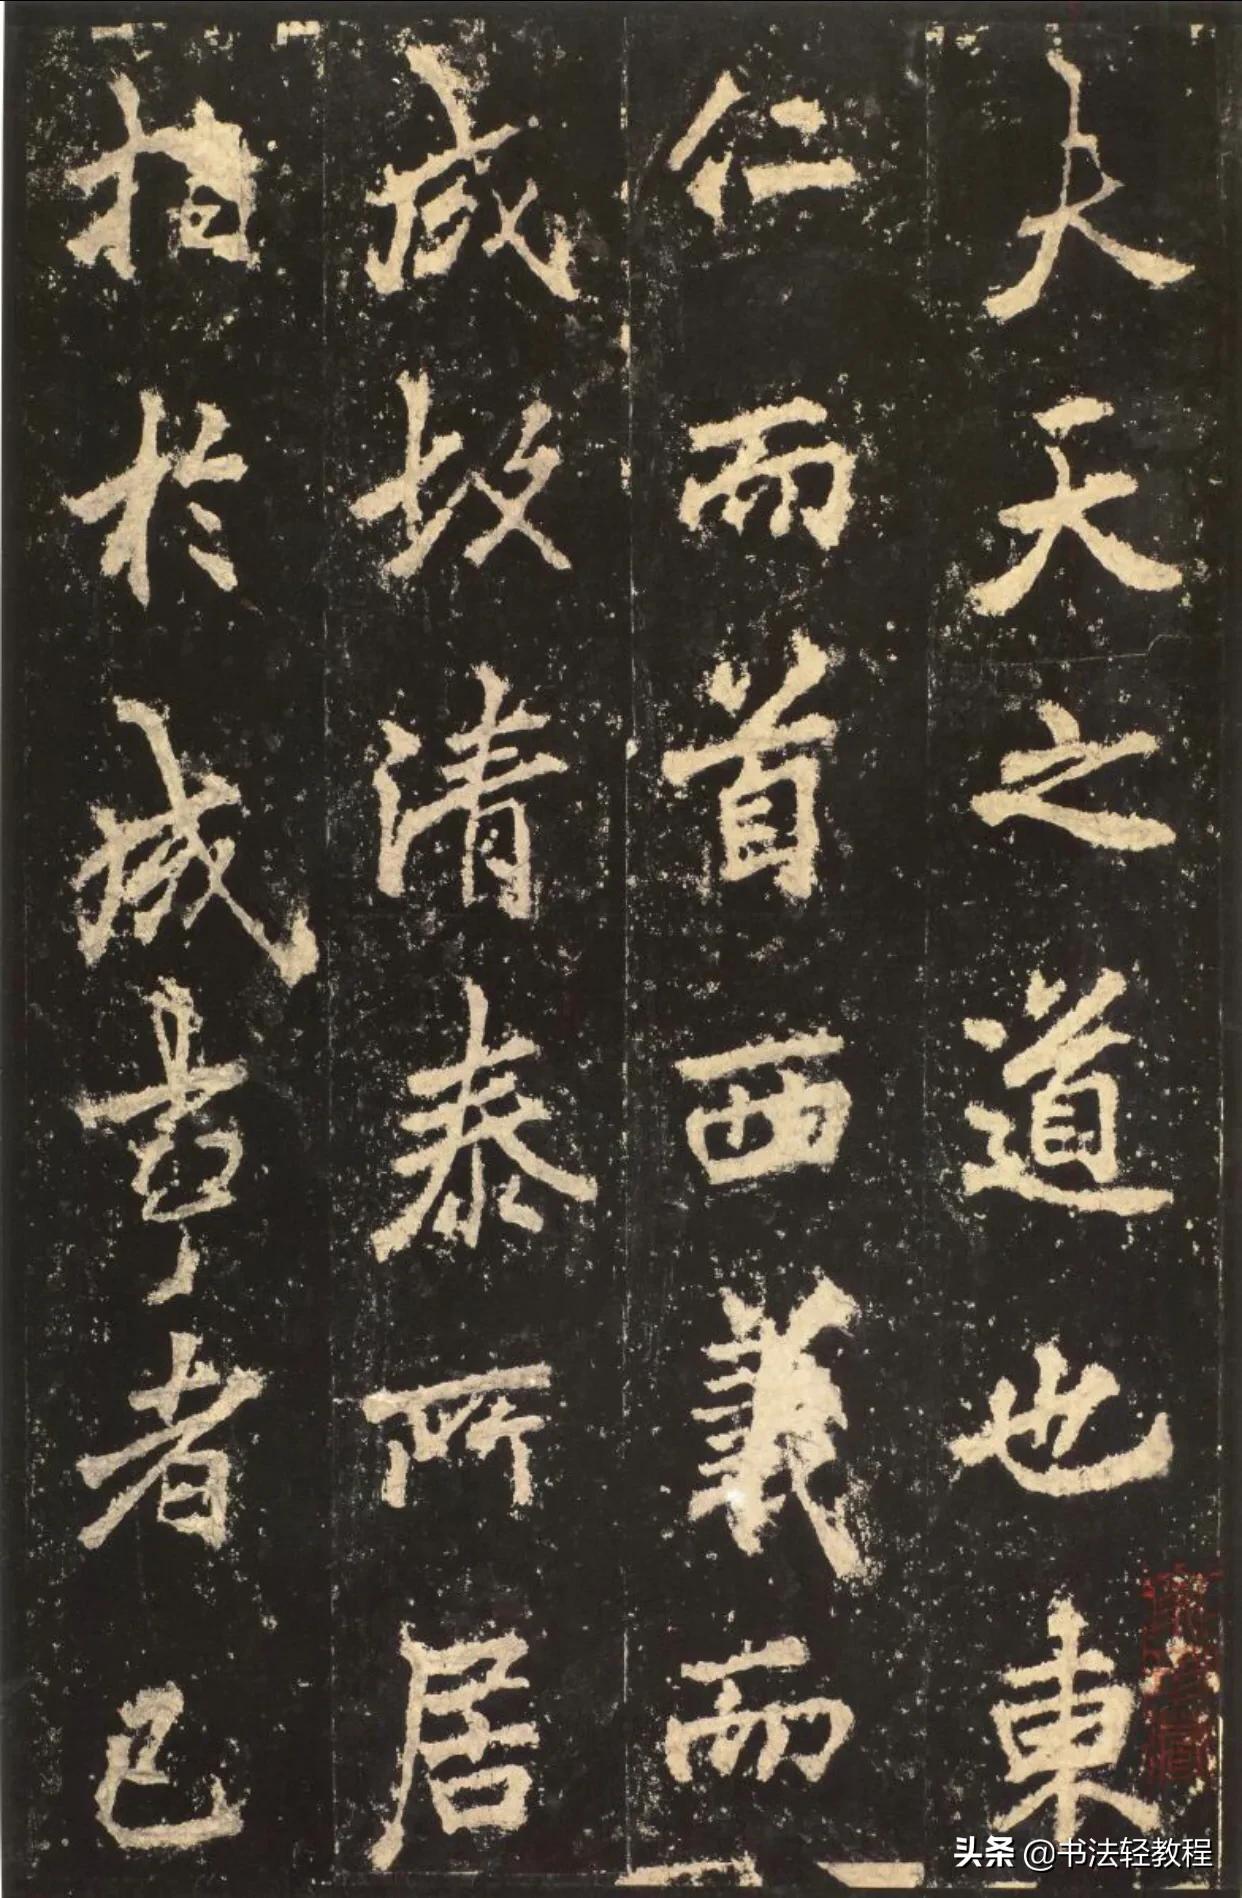 夫天之道也東
仁而首西義而
成故清泰所居
指於成事者已
头条 @书法轻教程